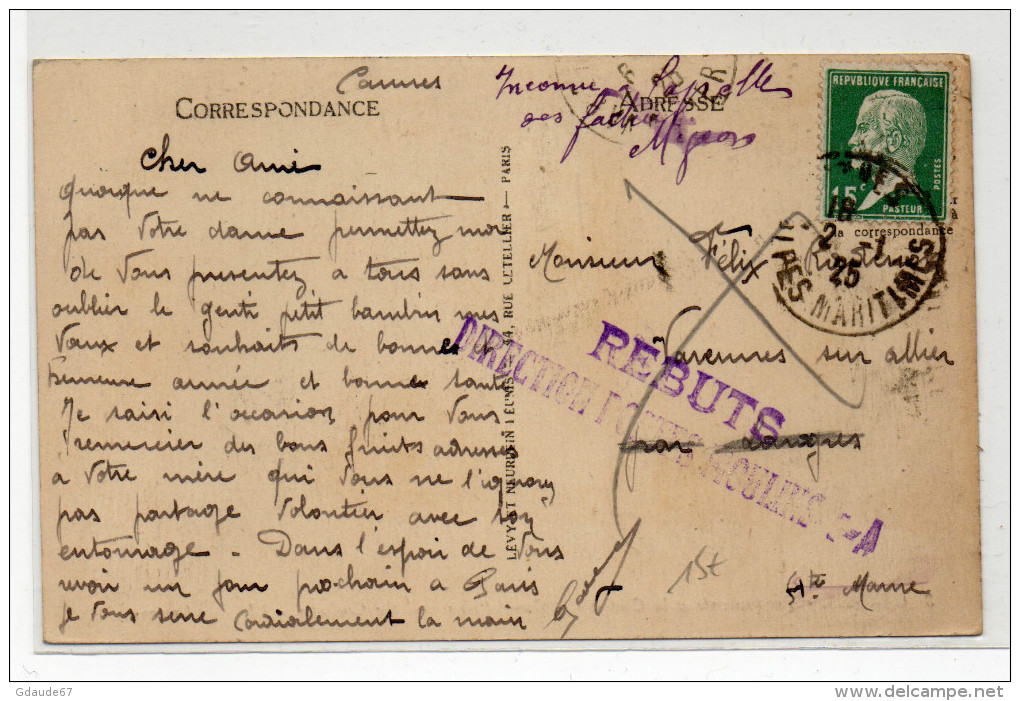 Cannes
CORRESPONDANCE
Cher Ami
quoique ne connaissant
pas Votre dame permettez moi
de Vous presentez a tous sans
oublier le gentil petit bambin mes
Vœux et souhaits de bonne et
heureuse année et bonne santé
Je saisi l'occasion pour Vous
remercier des bons fruits adressés
a votre mère qui Vous ne l'ignorez
pas partage Volontier avec son
entourage - Dans l'espoir de Vous
revoir un jour prochain a Paris
je Vous serre cordialement la main
LÉVY ET NEURDEIN RÉUNIS, 44, RUE LETELLIER — PARIS
Inconnu à l'appelle
des facteurs
Migeon
ADRESSE
REPVBLIQUE FRANÇAISE
POSTES
15c
PASTEUR
la correspondance
18
2 -1
25
ALPES MARITIMES
Monsieur Félix
Varennes sur allier
par Langres
Hte Marne
REBUTS
DIRECTION
15t
Gdaude67
http://www.delcampe.net